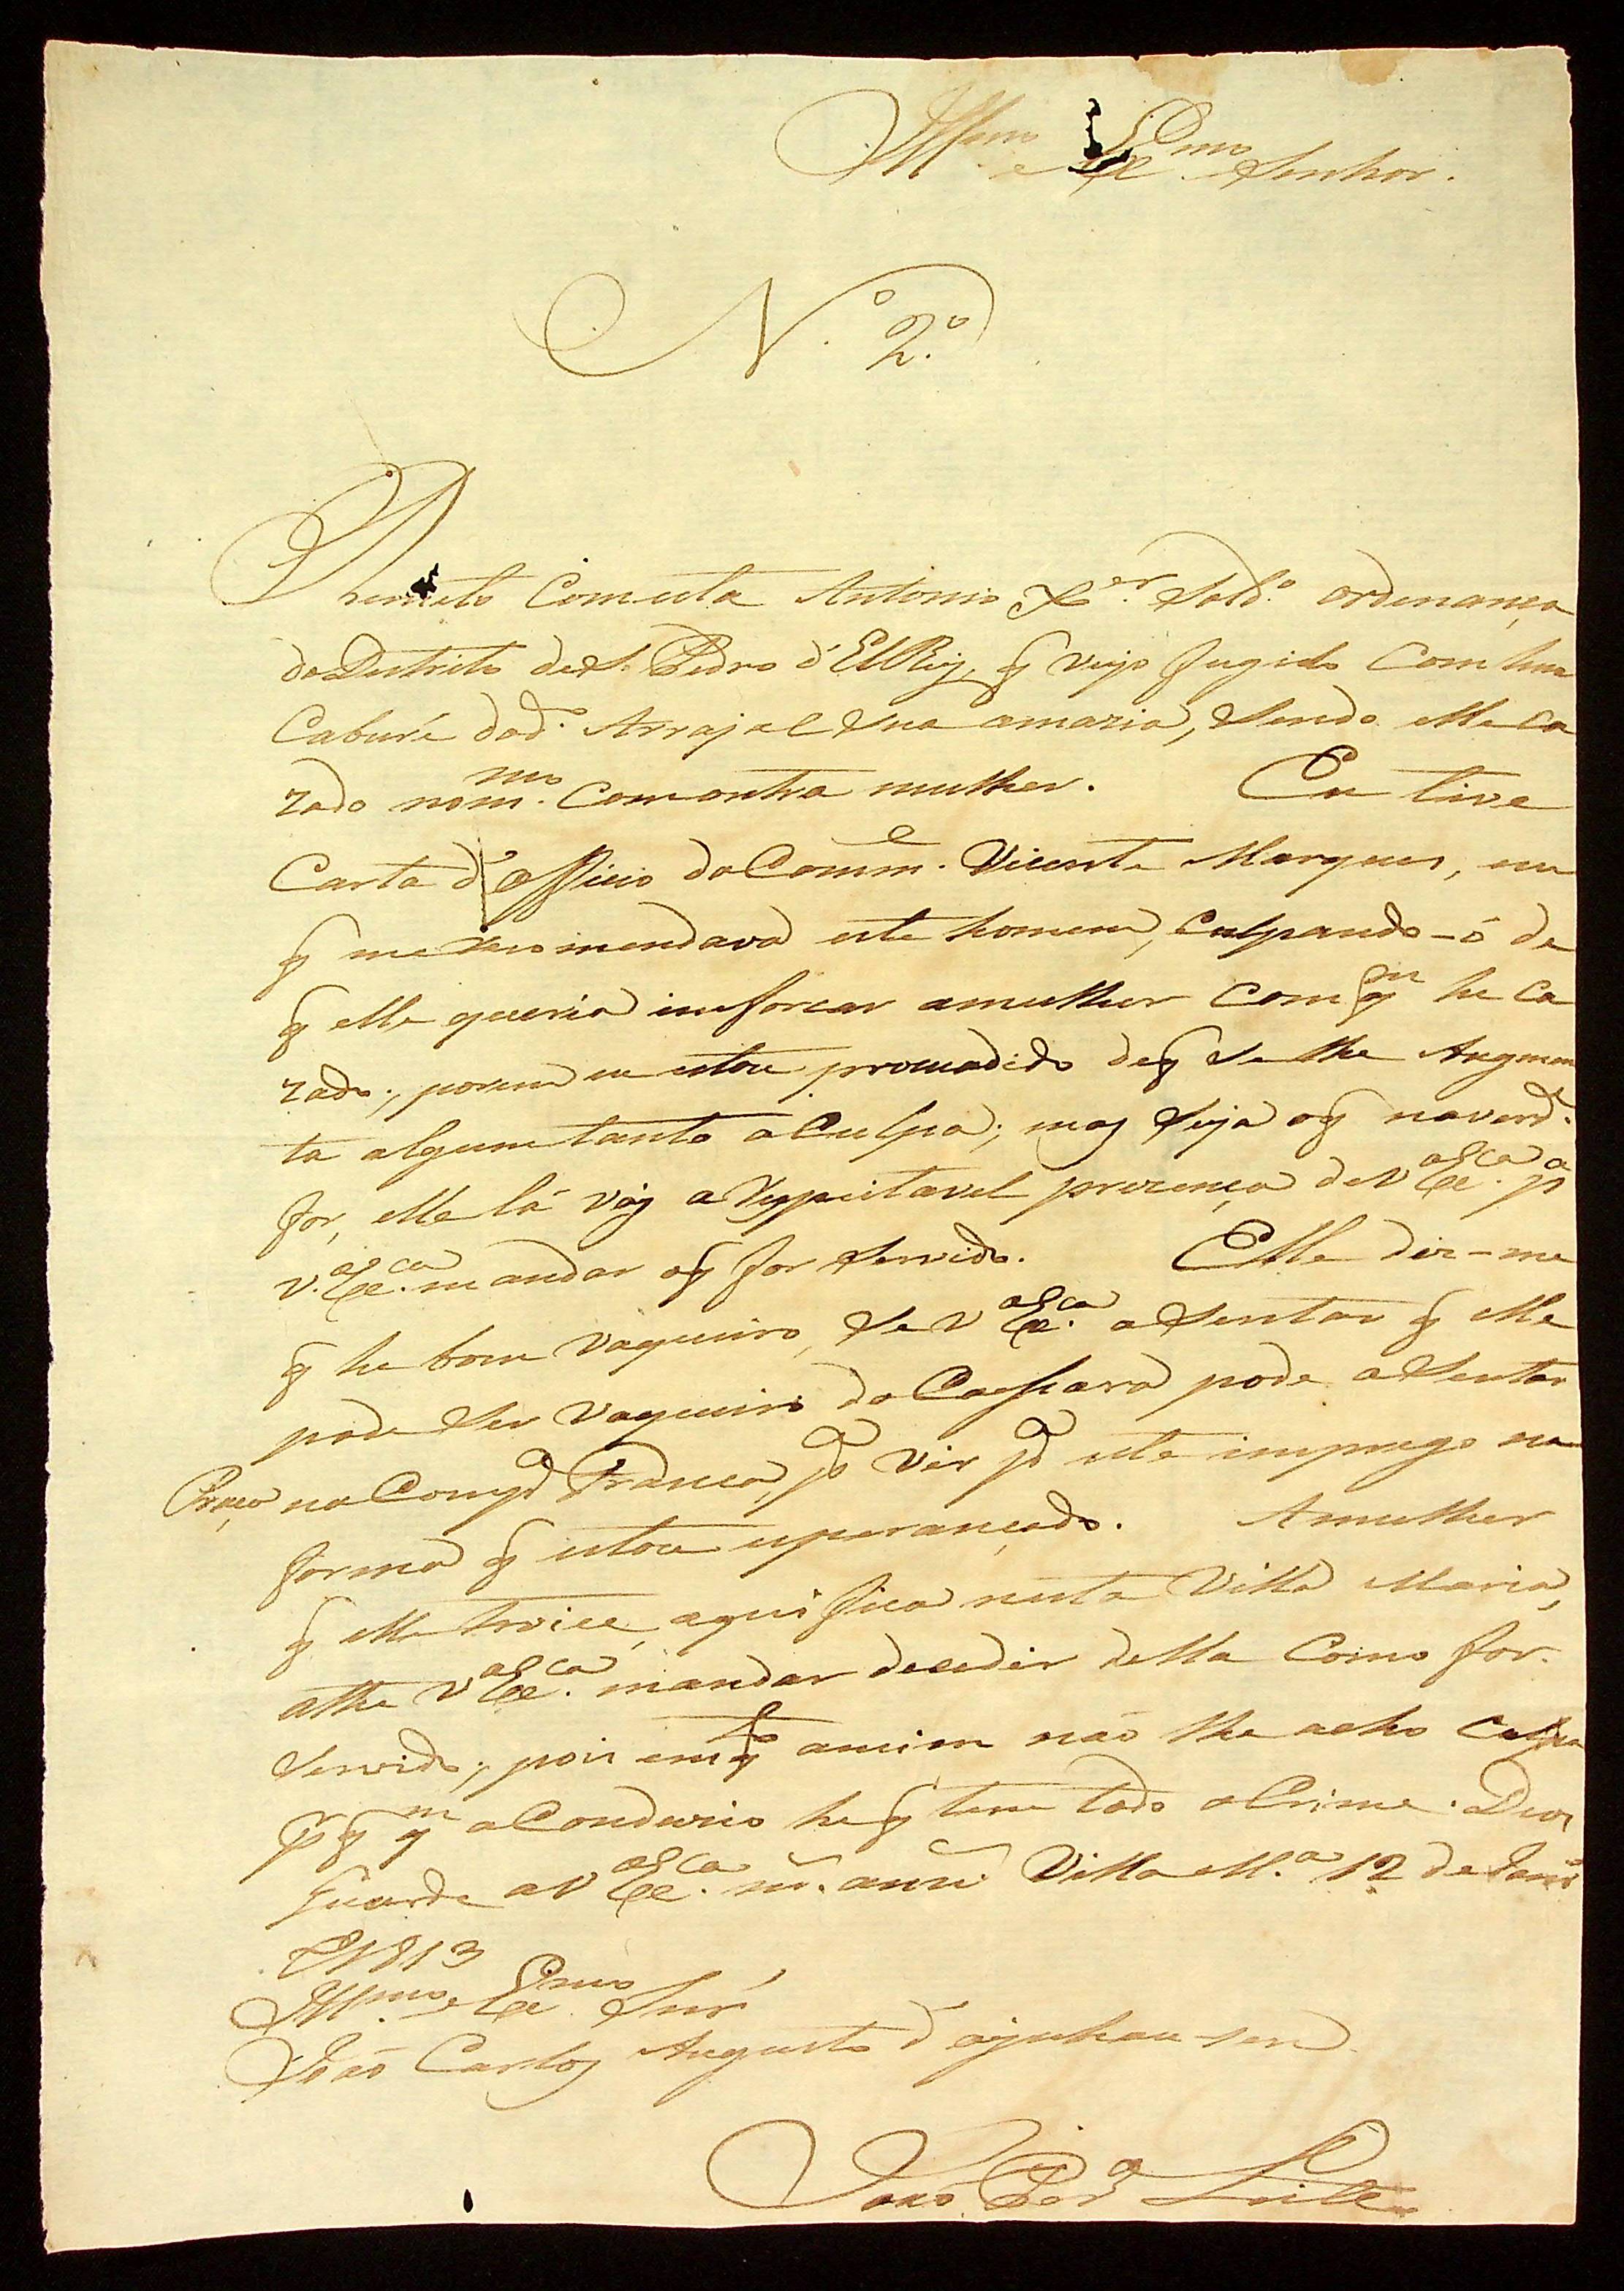 Illmo e Exmo Senhor.
N.º 2.º
Remeto Comesta Antonio Xer. Sold.º ordenança
do Destrito de S. Pedro d'ElRey, q veyo fugido Com hua
Caburé dod.º Arrayal Sua amazia, Sendo elle Ca
zado nommo. Comoutra mulher. Eu tive
Carta d'officio do Comme. Vicente Marques, em
q me recomendava este homem, Culpando-ó de
q elle queria inforcar amulher Com qm he Ca
zado; porem eu estou deq Se lhe Augmen
ta algum tanto a Culpa; mas Seja oq naverd.e
for, elle lá váy a Respeitavel prezença de V Exca. pa
V. Exca. mandar oq for Servido. Elle diz-me
q he bom Vaqueiro, Se V Exca. aSentar q elle
pode Ser Vaqueiro da Caissara pode aSentar
Praça na Compa Franca, pa Vir pa este imprego na
forma q estou esperançado. Amulher
q elle troice, aqui fica nesta Villa Maria,
athe V Exca. mandar decedir della Como for
Servido; pois emqto amim não lhe acho Culpa
prq qm a Conduzio he q tem todo o Crime. Deos
Guarde a V Exca. ms. anns. Villa M.a 12 de Janro
d'1813
Illmo. e Exmo. Snr.
João Carlos Augusto d'oyenhausen
João Pera Leite